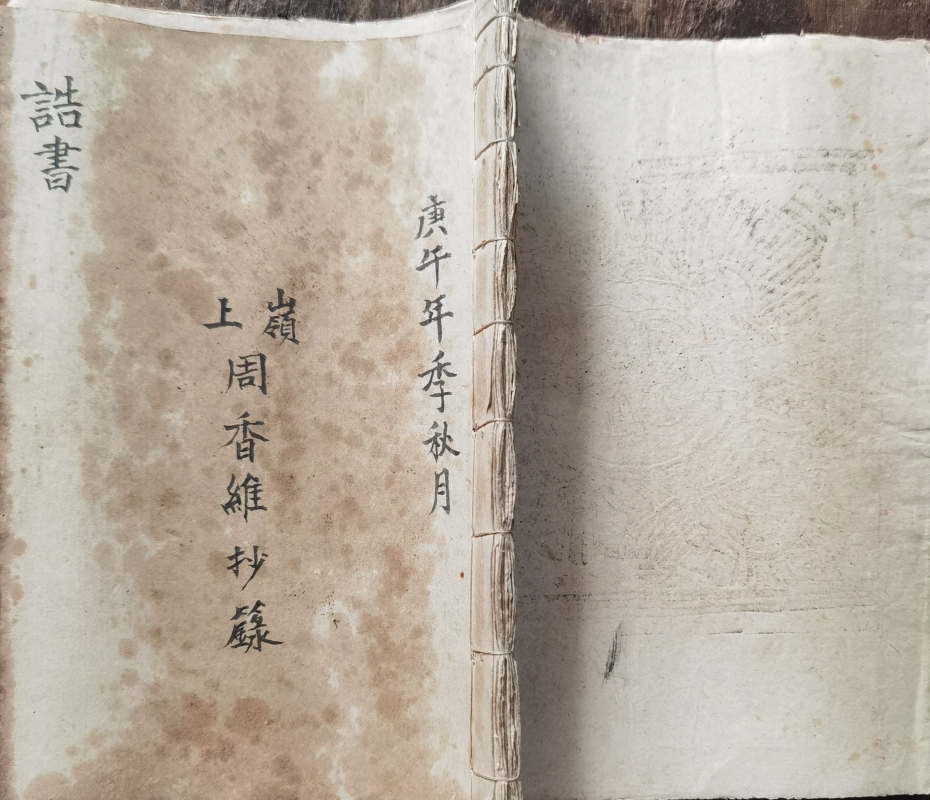 庚午年季秋月
嶺上周香維抄籙
誥書